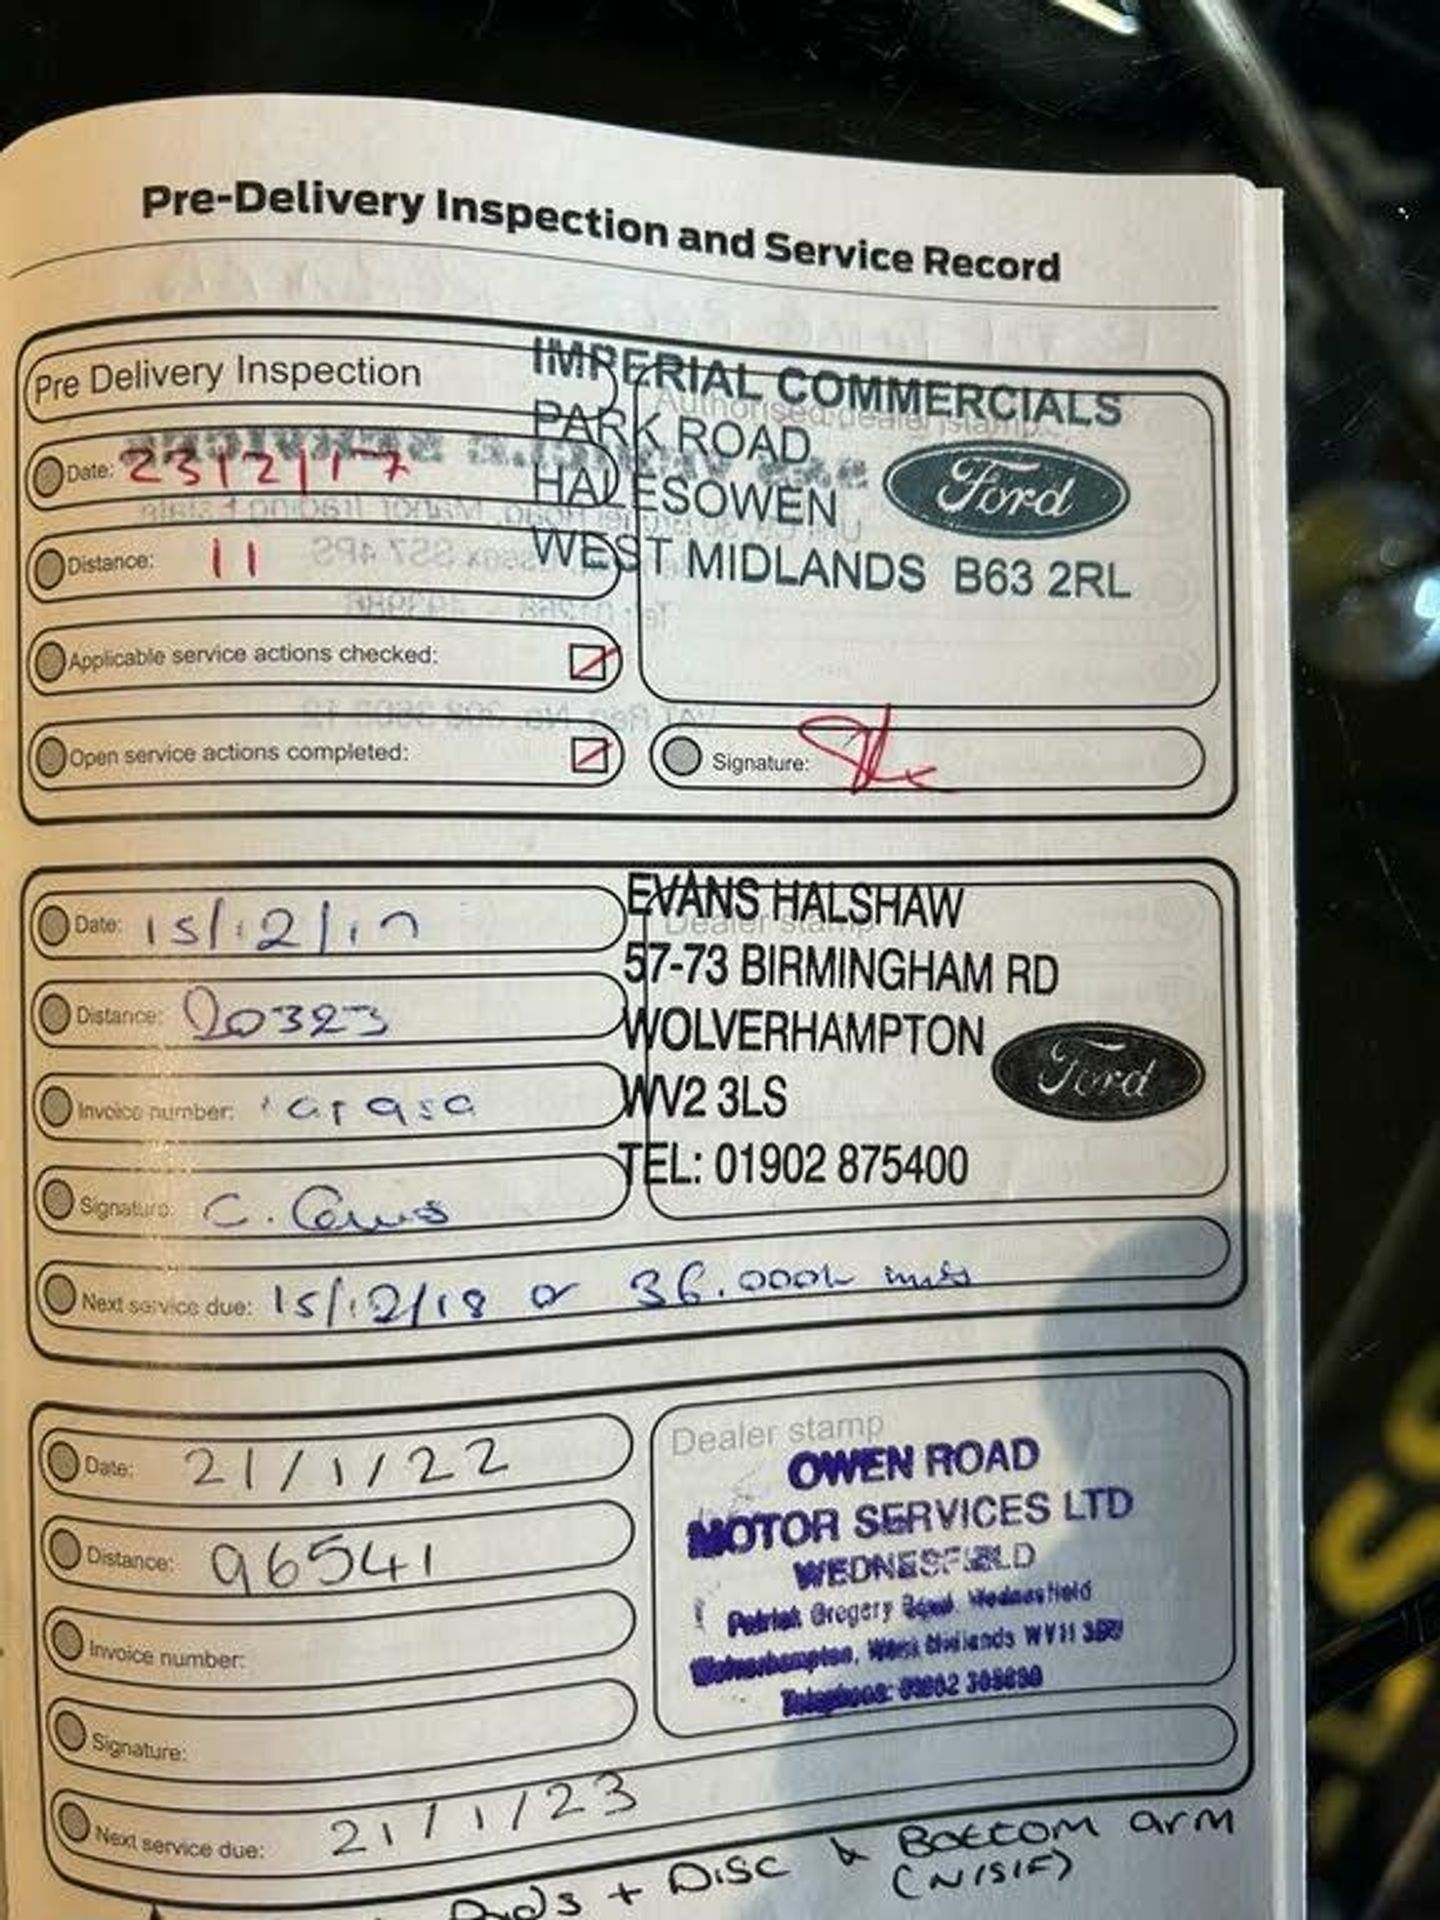 Pre-Delivery Inspection and Service Record
Pre Delivery Inspection
Date: 23/2/17
Distance: 11
Applicable service actions checked:
Open service actions completed:
Authorised dealer stamp
IMPERIAL COMMERCIALS
PARK ROAD
HALESOWEN
WEST MIDLANDS B63 2RL
Ford
Signature:
Date: 15/12/17
Distance: 20323
Invoice number:
Signature:
Next service due: 15/12/18 or 36.000
Dealer stamp
EVANS HALSHAW
57-73 BIRMINGHAM RD
WOLVERHAMPTON
WV2 3LS
TEL: 01902 875400
Ford
Date: 21/1/22
Distance: 96541
Invoice number:
Signature:
Next service due: 21/1/23
Dealer stamp
OWEN ROAD
MOTOR SERVICES LTD
WEDNESFIELD
Patrick Gregory Road, Wednesfield
Wolverhampton, West Midlands WV11
Telephone: 01902
Pads + Disc & Bottom arm
(N/S/F)